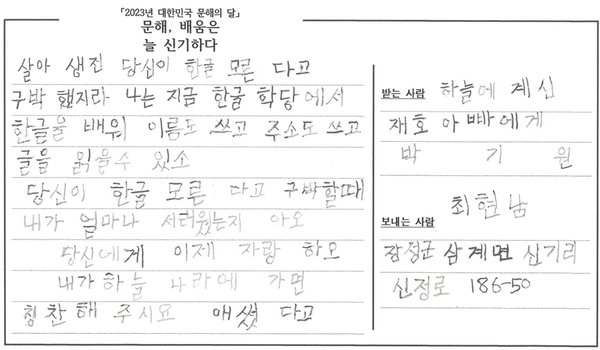 「2023년 대한민국 문해의 달」
문해, 배움은
늘 신기하다
살아 생전 당신이 한글 모른 다고
구박 했지라 나는 지금 한글 학당에서
한글을 배워 이름도 쓰고 주소도 쓰고
글을 읽을수 있소
당신이 한글 모른 다고 구박할때
내가 얼마나 서러웠는지 아오
당신에게 이제 자랑 하오
내가 하늘 나라에 가면
칭찬해 주시요 애썼 다고
받는 사람 하늘에 계신
재호 아빠에게
박 기 원
최현남
보내는 사람
장성군 삼계면 신기리
신정로 186-50